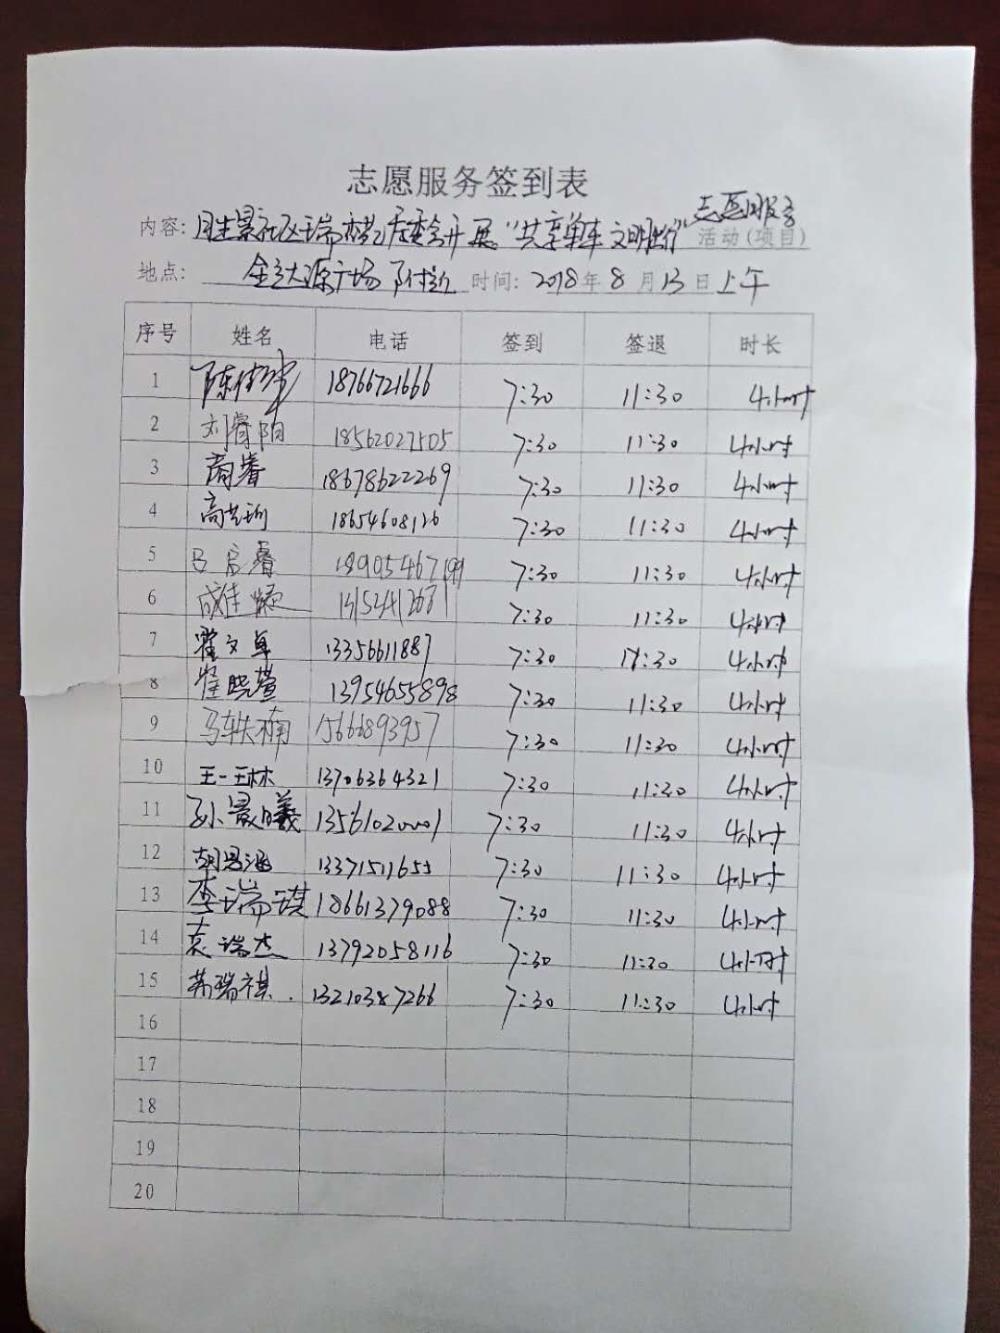 志愿服务签到表
志愿服务
内容: 社区瑞 居委会开展"共享单车 文明出行" 活动(项目)
地点: 金达源广场附近 时间: 2018年8月13日上午
序号 姓名 电话 签到 签退 时长
1 陈 18766721666 7:30 11:30 4小时
2 刘睿阳 18562027505 7:30 11:30 4小时
3 商睿 18678622269 7:30 11:30 4小时
4 高艺珂 18654608126 7:30 11:30 4小时
5 吕宸睿 189054671 7:30 11:30 4小时
6 成佳 7:30 11:30 4小时
7 霍文卓 13356611887 7:30 11:30 4小时
8 崔晓萱 13954655898 7:30 11:30 4小时
9 马轶楠 15666893957 7:30 11:30 4小时
10 王一琳 13706364321 7:30 11:30 4小时
11 孙晨曦 13561020001 7:30 11:30 4小时
12 胡思涵 13371511655 7:30 11:30 4小时
13 李瑞琪 18661379088 7:30 11:30 4小时
14 袁瑞杰 13792058116 7:30 11:30 4小时
15 瑞祺 13210387266 7:30 11:30 4小时
16
17
18
19
20